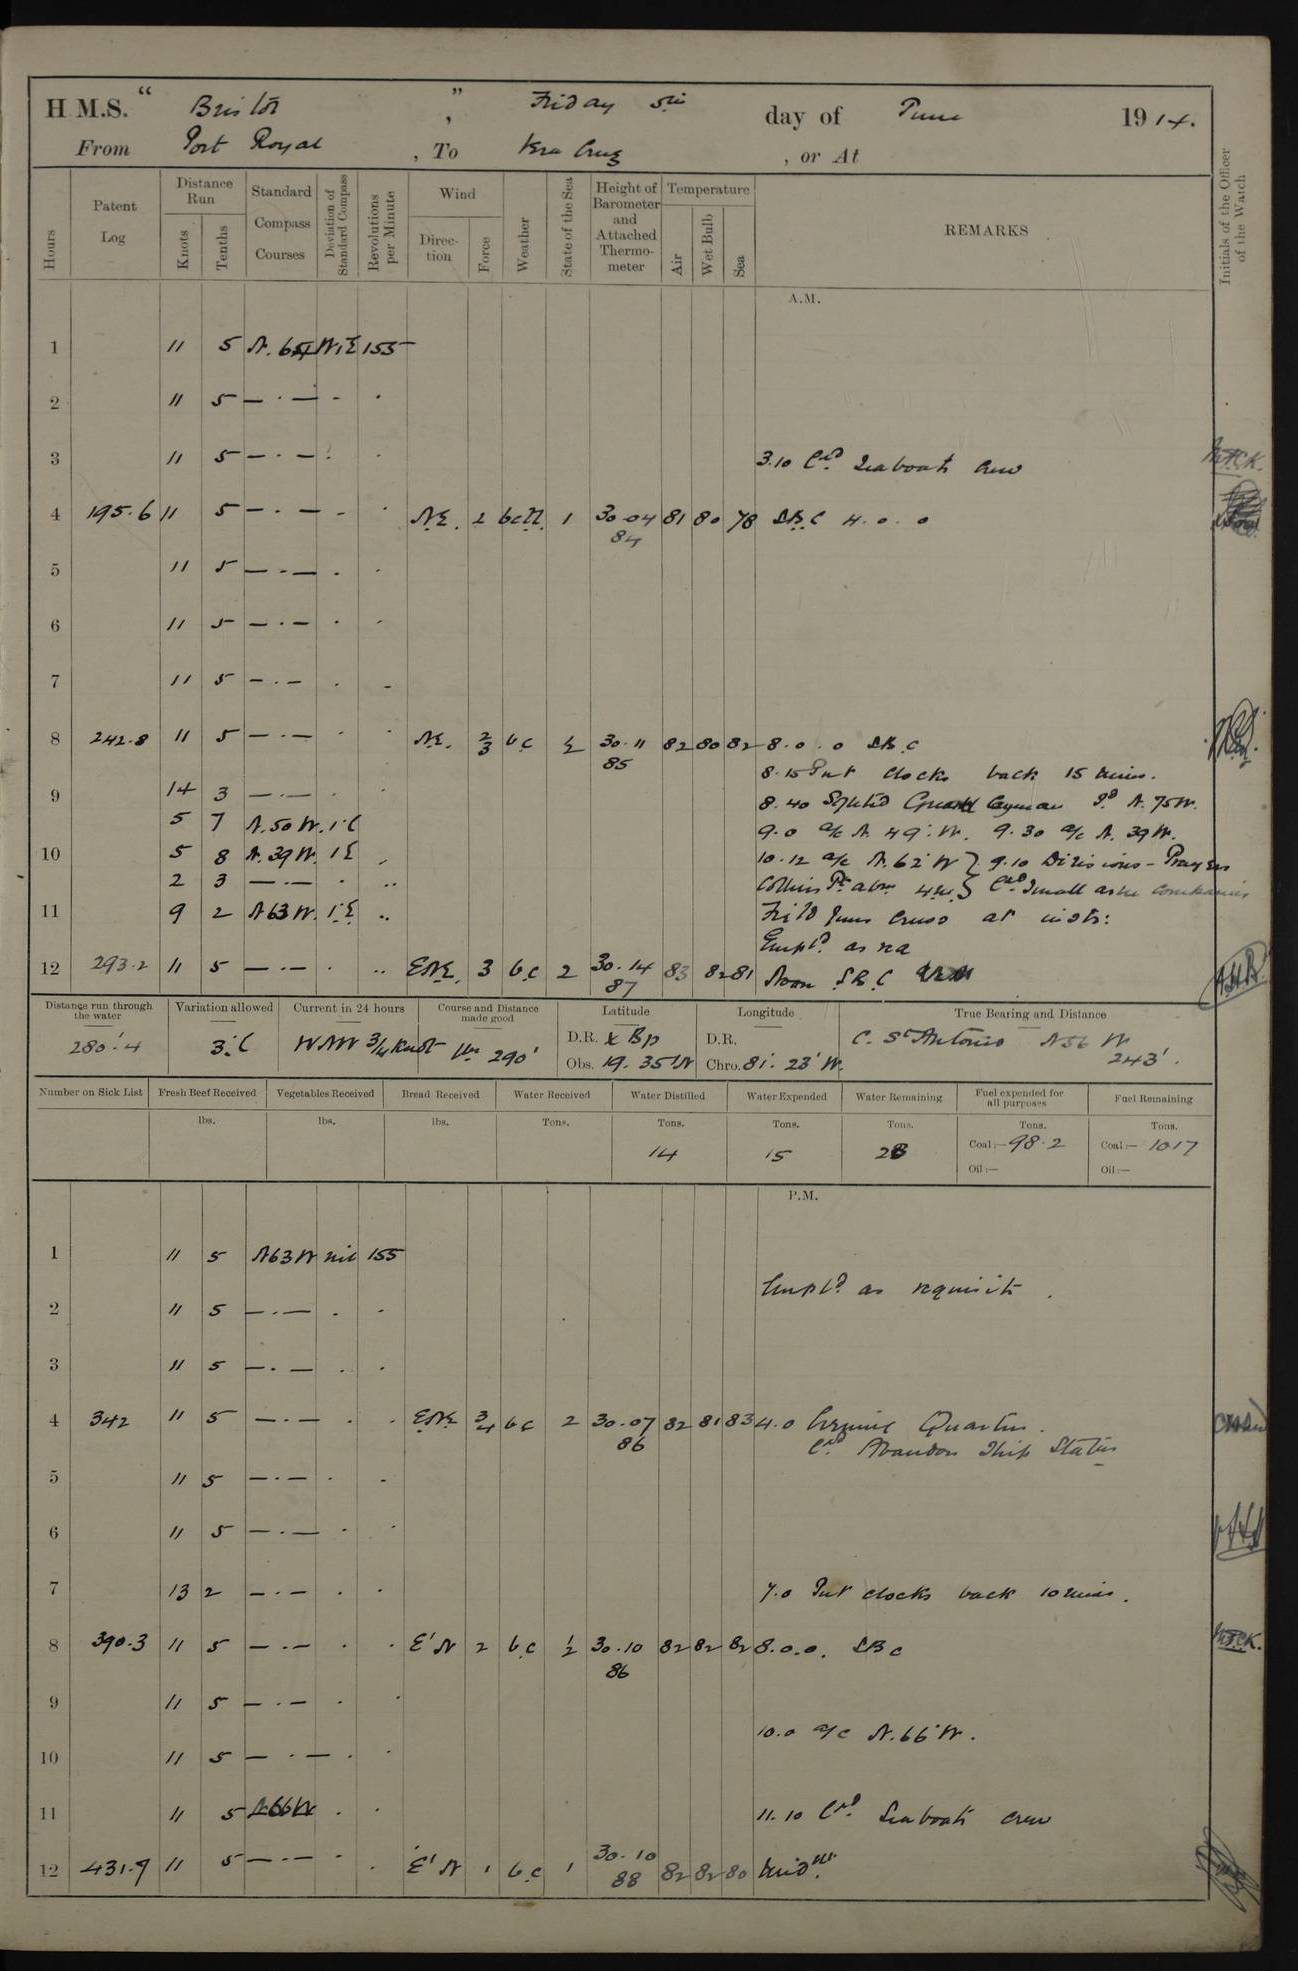 H.M.S. "Bristol", Friday 5th day of June 1914.
From Port Royal, To Vera Cruz, or At
Hours
Patent Log
Distance Run
Knots
Tenths
Standard Compass Courses
Deviation of Standard Compass
Revolutions per Minute
Wind
Direction
Force
Weather
State of the Sea
Height of Barometer and Attached Thermometer
Temperature
Air
Wet Bulb
Sea
REMARKS
Initials of the Officer of the Watch
A.M.
1 11 5 155
2 11 5 — · — · ·
3 11 5 — · — · · 3.10 Exd. Seaboats Crew M.F.C.K.
4 195.6 11 5 — · — · · N.E. 2 1 30.04 81 80 78 S.R.C 4.0.0
84
5 11 5 — · — · ·
6 11 5 — · — · ·
7 11 5 — · — · -
8 242.8 11 5 — · — · · N.E. 2/3 b.c ½ 30.11 82 80 82 8.0.0 S.R.C
85
8.15 Put clocks back 15 mins.
9 14 3 — · — · ·
8.40 Sighted Grand Cayman Id. N.75W.
5 7 N.50 W.
9.0 a/c N. 49° W. 9.30 a/c N. 39 W.
10 5 8 N.39 W. 1 E
10.12 a/c N.62 W } 9.10 Divisions - Prayers
2 3 — · — · ..
Collins Pt. abm. 4m } Exd. Small arm companies
11 9 2 N63 W. 1.E ..
Field guns crews at instr:
Empld. as req
12 293.2 11 5 — · — · .. ENE. 3 b.c 2 30.14 83 82 81 Noon S.R.C
87
Distance run through the water
280'.4
Variation allowed
3°.E
Current in 24 hours
WNW 3/4 Knot
Course and Distance made good
290'
Latitude
D.R. x Bp
Obs. 19. 35' N
Longitude
D.R.
Chro. 81°. 23' W.
True Bearing and Distance
C. St Antonio N56 W
243'.
Number on Sick List
Fresh Beef Received
lbs.
Vegetables Received
lbs.
Bread Received
lbs.
Water Received
Tons.
Water Distilled
Tons.
14
Water Expended
Tons.
15
Water Remaining
Tons.
Fuel expended for all purposes
Tons.
Coal:— 98.2
Oil:—
Fuel Remaining
Tons.
Coal:— 1017
Oil:—
P.M.
1 11 5 N63 W nil 155
Empld. as requisite.
2 11 5 — · — · ·
3 11 5 — · — · ·
4 342 11 5 — · — · · E.N.E 3/4 b c 2 30.07 82 81 83 4.0 Evening Quarters.
86
Exd. Abandon Ship Stations
5 11 5 — · — · ·
6 11 5 — · — · ·
7 13 2 — · — · · 7.0 Put clocks back 10 mins.
8 390.3 11 5 — · — · · E'N 2 b.c ½ 30.10 82 82 82 8.0.0. S.R.C M.F.C.K.
86
9 11 5 — · — · ·
10.0 a/c N.66° W.
10 11 5 — · — · ·
11 11 5 N66W · · 11.10 Exd. Seaboats crew
12 431.9 11 5 — · — · · E'N 1 b.c 1 30.10 82 82 80 Midnt.
88